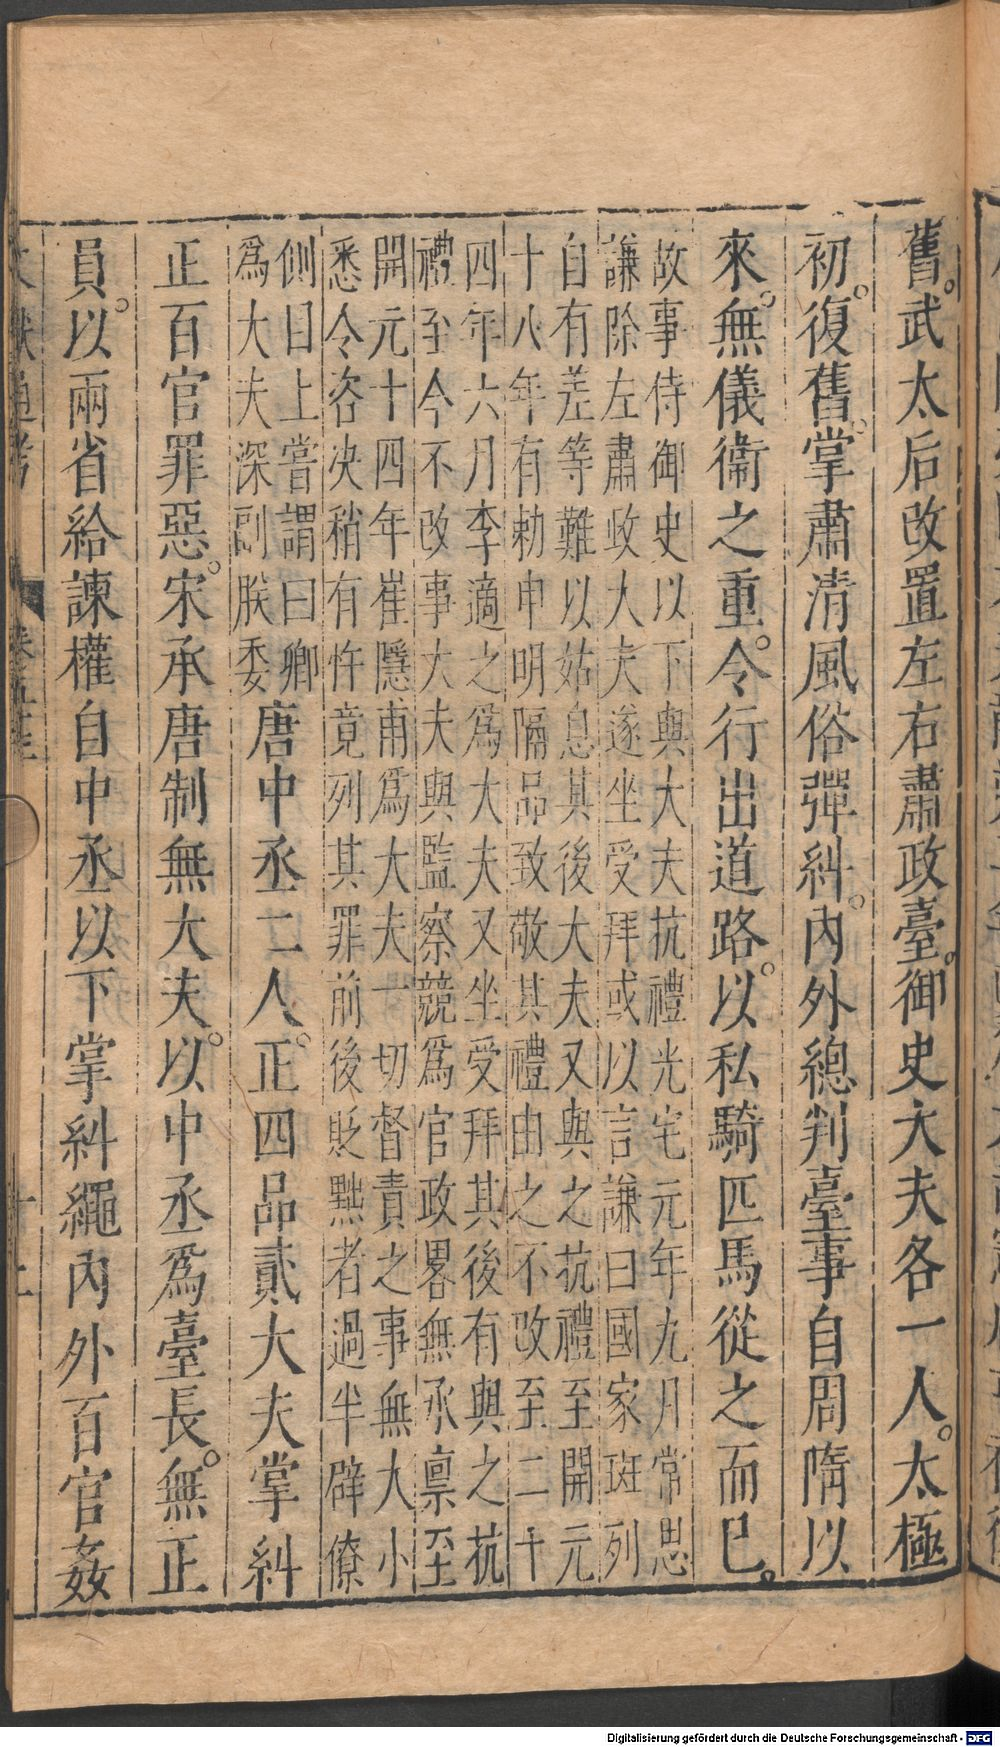 舊。武太后改置左右肅政臺。御史大夫各一人。太極
初。復舊。掌肅清風俗彈糾。內外總判臺事自周隋以
來。無儀衞之重。令行出道路。以私騎匹馬從之而已。
故事侍御史以下與大夫抗禮光宅元年九月常思
謙除左肅政大夫遂坐受拜或以言謙曰國家班列
自有差等難以姑息其後大夫又與之抗禮至開元
十八年有勅申明隔品致敬其禮由之不改至二十
四年六月李適之爲大夫又坐受拜其後有與之抗
禮至今不改事大夫與監察競爲官政畧無承禀至
開元十四年崔隱甫爲大夫一切督責之事無大小
悉令咨决稍有忤竟列其罪前後貶黜者過半群僚
側目上嘗謂曰卿
爲大夫深副朕委
唐中丞二人。正四品貳大夫掌糾
正百官罪惡。宋承唐制無大夫。以中丞爲臺長。無正
員。以兩省給諫權自中丞以下掌糾繩內外百官姦
文獻通考 卷五十三
Digitalisierung gefördert durch die Deutsche Forschungsgemeinschaft - DFG